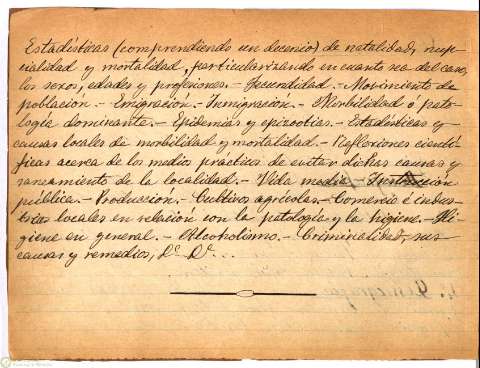 Estadísticas (comprendiendo un decenio) de natalidad, nup-
cialidad y mortalidad, particularizando en cuanto sea del caso,
los sexos, edades y profesiones.- Fecundidad.- Movimiento de
población.- Emigración.- Inmigración.- Morbilidad ó pato-
logía dominante.- Epidemias y epizootias.- Estadísticas y
causas locales de morbilidad y mortalidad.- Reflexiones cientí-
ficas acerca de los medios prácticos de evitar dichas causas y
saneamiento de la localidad.- Vida media.- Instrucción
pública.- Producción.- Cultivos agrícolas.- Comercio é indus-
trias locales en relación con la patología y la higiene.- Hi-
giene en general.- Alcoholismo.- Criminalidad, sus
causas y remedios,